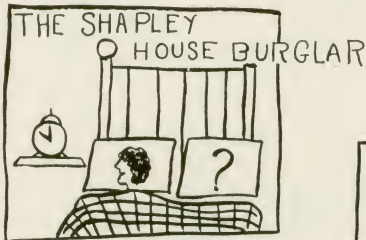 THE SHAPLEY
HOUSE BURGLAR
?